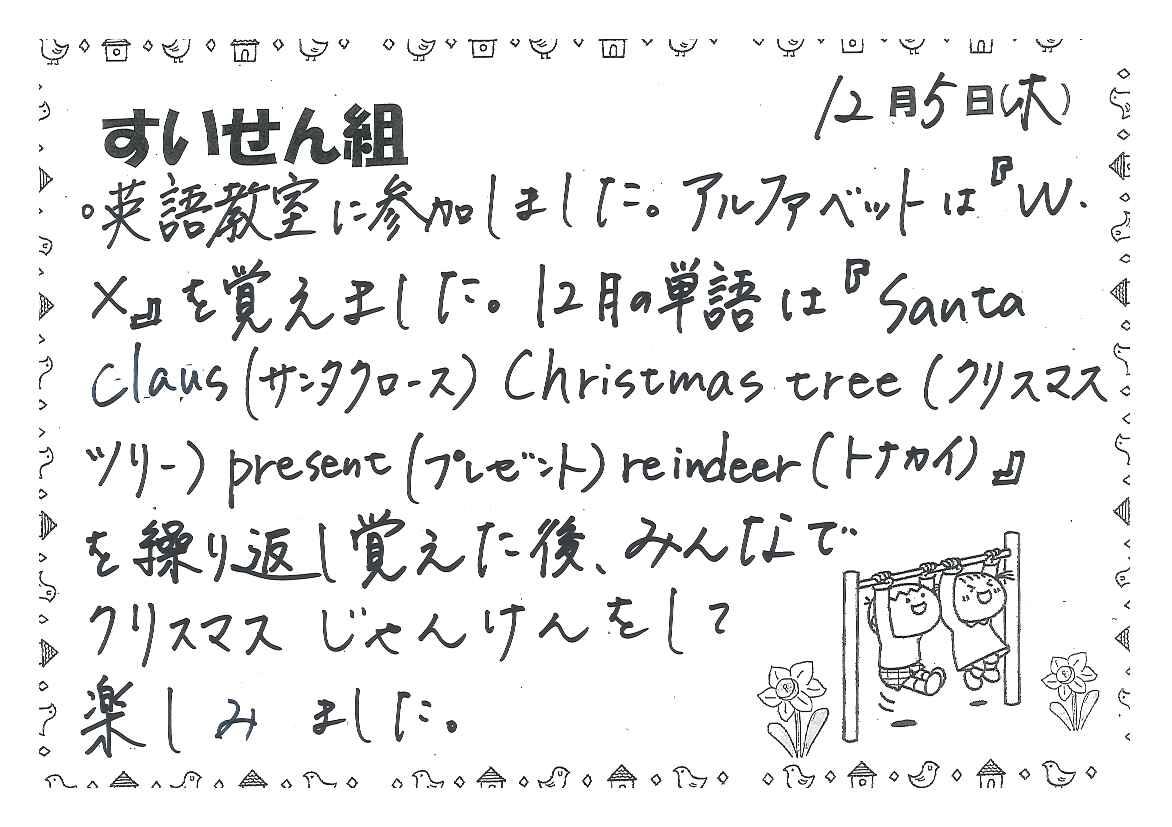 12月5日(木)
すいせん組
。英語教室に参加しました。アルファベットは『W.
X』を覚えました。12月の単語は『Santa
Claus(サンタクロース) Christmas tree (クリスマス
ツリー) present (プレゼント) reindeer (トナカイ)』
を繰り返し覚えた後、みんなで
クリスマスじゃんけんをして
楽しみました。